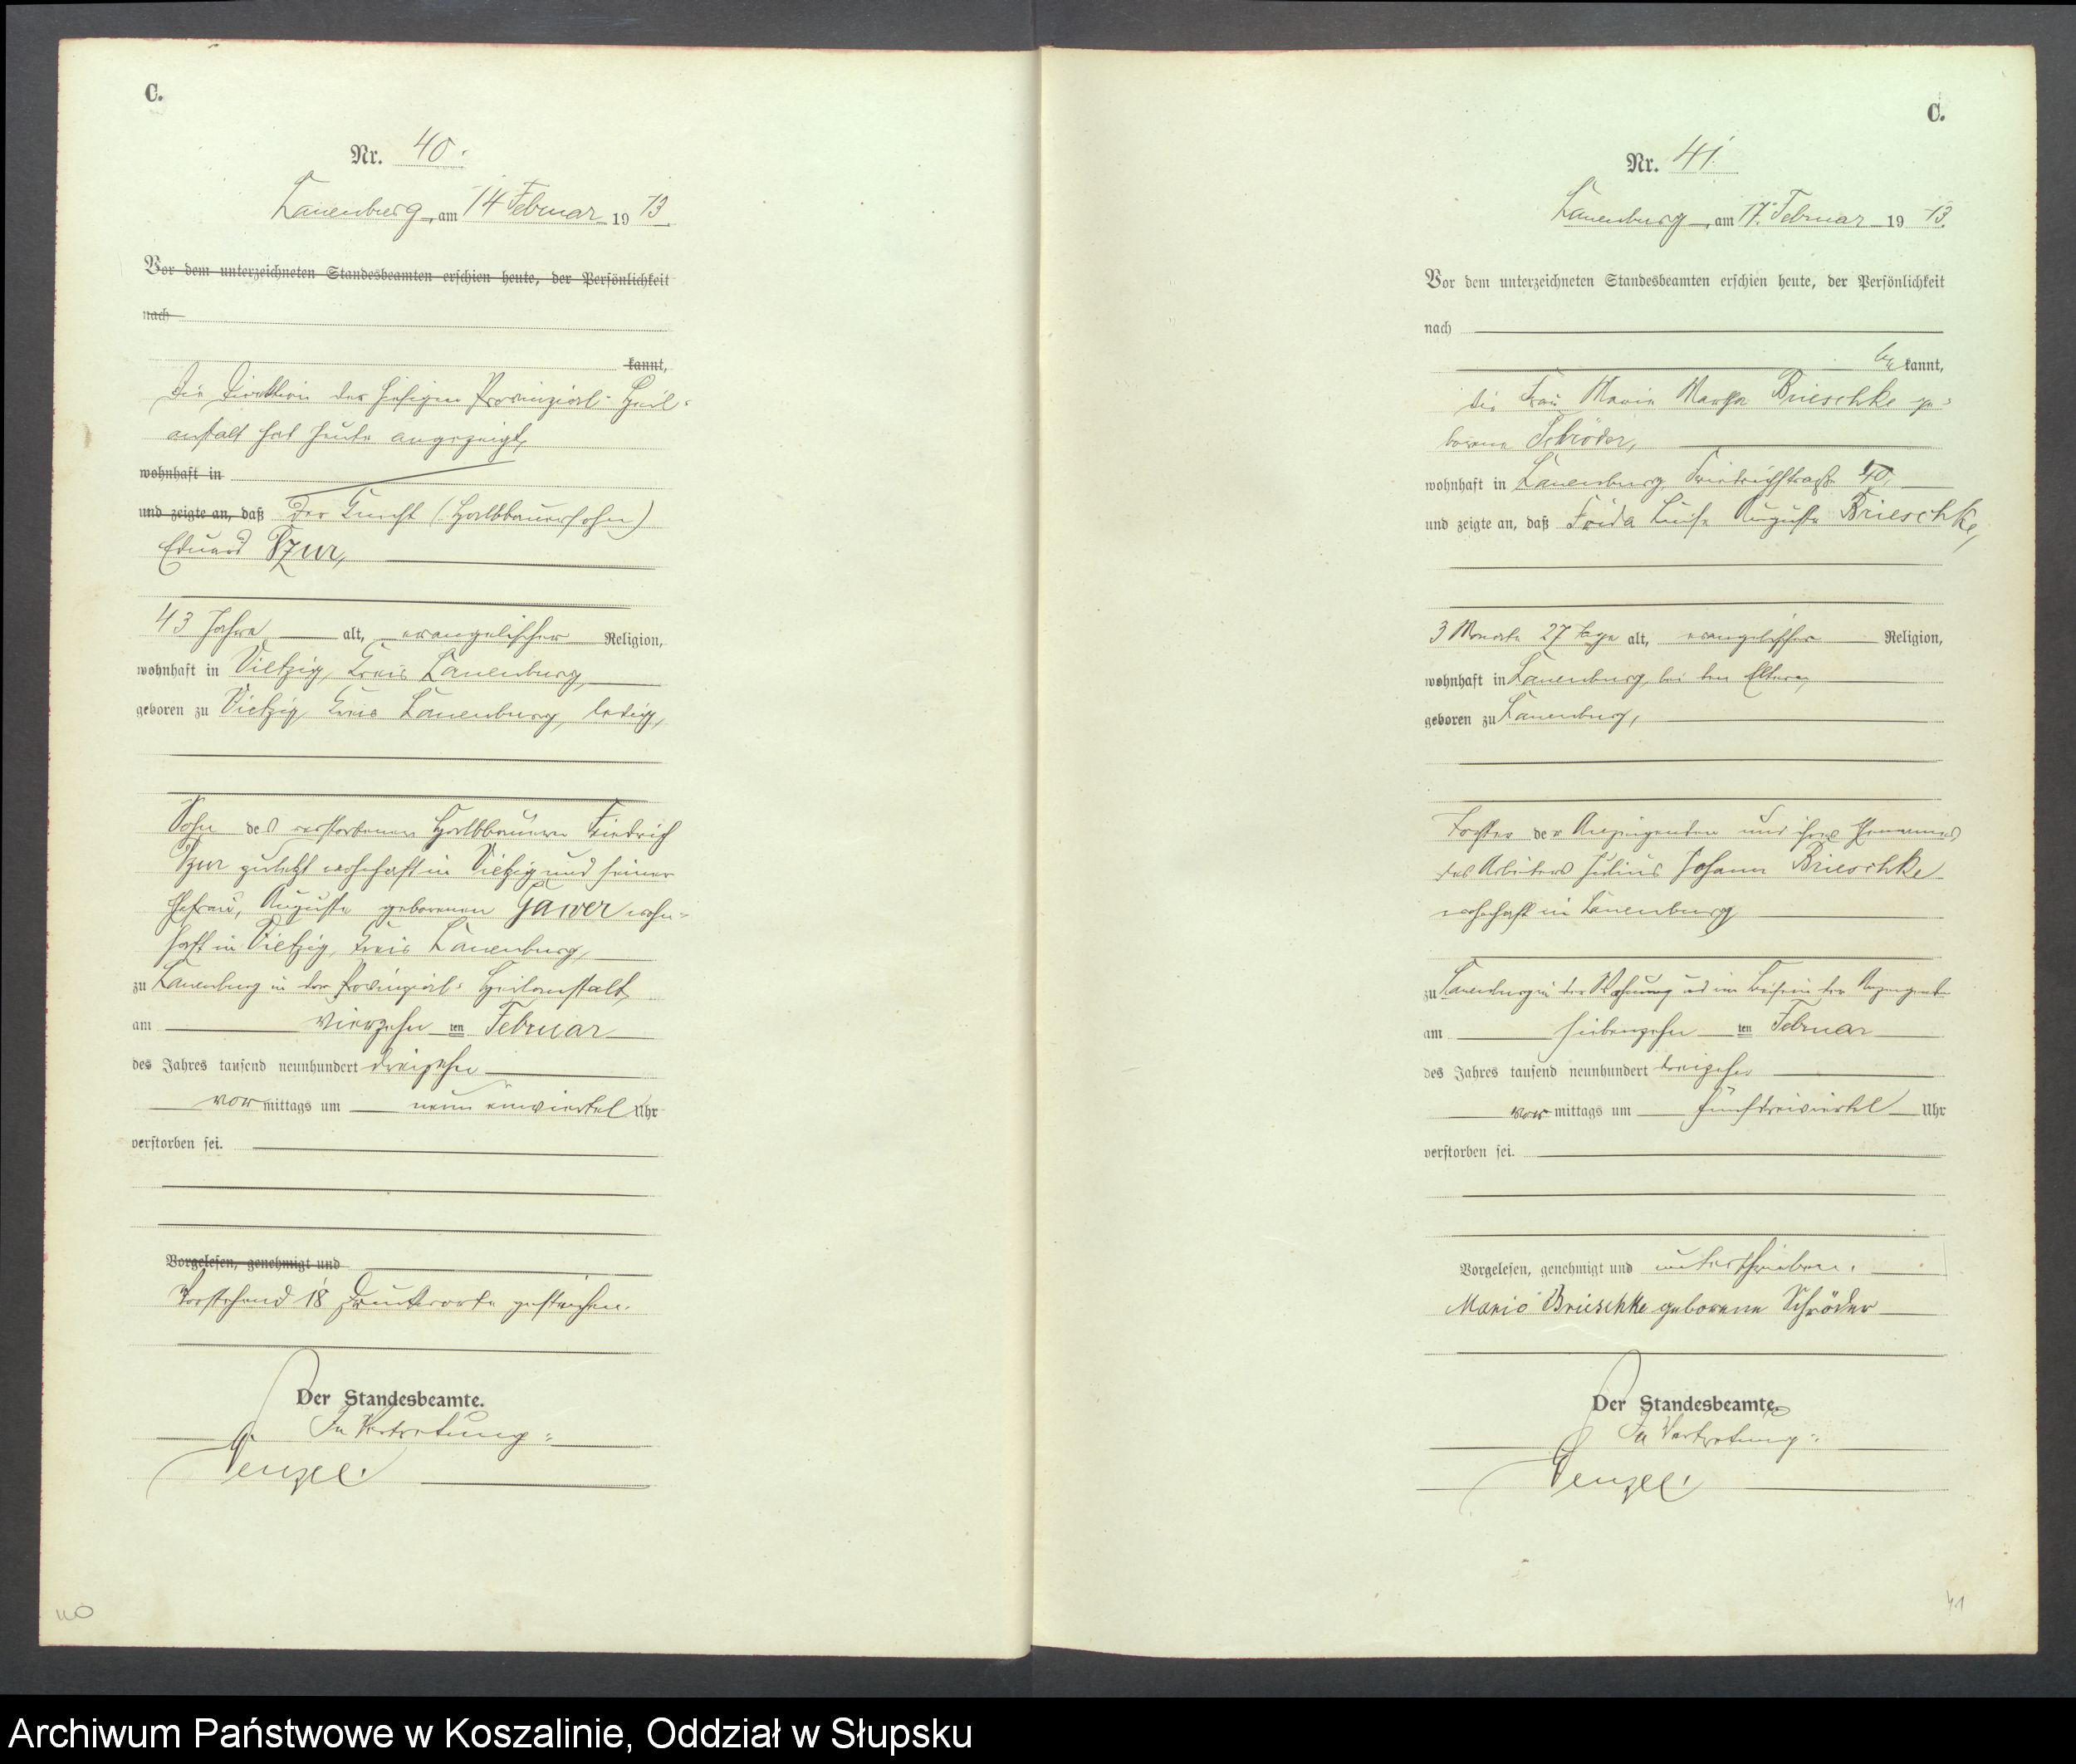 C.
Nr. 40.
Lauenburg, am 14 Februar 1913.
Vor dem unterzeichneten Standesbeamten erschien heute, der Persönlichkeit
nach
kannt,
die Direktion der hiesigen Provinzial-Heil-
anstalt hat heute angezeigt,
wohnhaft in
und zeigte an, daß der Knecht (Halbbauersohn)
Eduard Szur,
43 Jahre alt, evangelischer Religion,
wohnhaft in Vietzig, Kreis Lauenburg,
geboren zu Vietzig, Kreis Lauenburg, ledig,
Sohn des verstorbenen Halbbauern Friedrich
Szur zuletzt wohnhaft in Vietzig und seiner
Ehefrau, Auguste geborenen Gawer wohn-
haft in Vietzig, Kreis Lauenburg,
zu Lauenburg in der Provinzial-Heilanstalt,
am vierzehnten Februar
des Jahres tausend neunhundert dreizehn
vormittags um neun einviertel Uhr
verstorben sei.
Vorgelesen, genehmigt und
Vorstehend 18 Druckworte gestrichen.
Der Standesbeamte.
In Vertretung:
Wenzel.
40
C.
Nr. 41.
Lauenburg, am 17. Februar 1913.
Vor dem unterzeichneten Standesbeamten erschien heute, der Persönlichkeit
nach
bekannt,
die Frau Marie Brieschke ge-
borene Schröder,
wohnhaft in Lauenburg Friedrichstraße 40,
und zeigte an, daß Frida Luise Auguste Brieschke,
3 Monate 27 Tage alt, evangelischer Religion,
wohnhaft in Lauenburg, bei den Eltern,
geboren zu Lauenburg,
Tochter der Anzeigenden und ihres Ehemannes
des Arbeiters Julius Johann Brieschke
wohnhaft in Lauenburg
zu Lauenburg in der Wohnung und im Beisein der Anzeigenden
am siebenzehnten Februar
des Jahres tausend neunhundert dreizehn
vormittags um fünf dreiviertel Uhr
verstorben sei.
Vorgelesen, genehmigt und unterschrieben.
Marie Brieschke geborene Schröder
Der Standesbeamte.
In Vertretung:
Wenzel.
41
Archiwum Państwowe w Koszalinie, Oddział w Słupsku